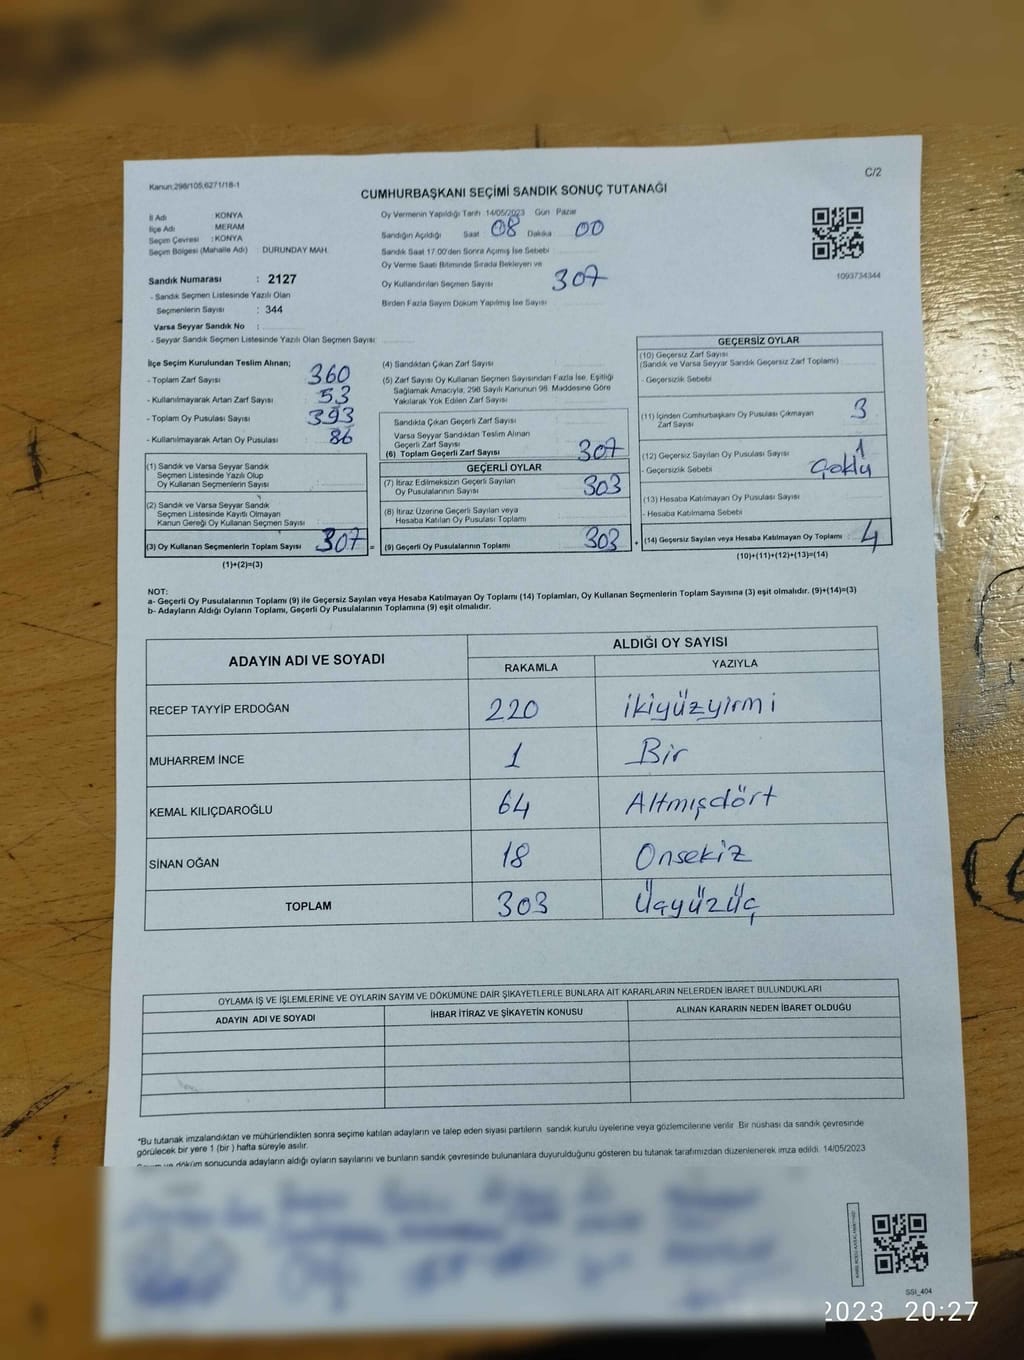 Kanun:298/105,6271/18-1
C/2
CUMHURBAŞKANI SEÇİMİ SANDIK SONUÇ TUTANAĞI
İl Adı : KONYA
İlçe Adı : MERAM
Seçim Çevresi : KONYA
Seçim Bölgesi (Mahalle Adı) : DURUNDAY MAH.
Oy Vermenin Yapıldığı Tarih 14/05/2023 Gün Pazar
Sandığın Açıldığı Saat 08 Dakika 00
Sandık Saat 17.00'den Sonra Açımış İse Sebebi
Oy Verme Saati Bitiminde Sırada Bekleyen ve
Oy Kullandırılan Seçmen Sayısı 307
Birden Fazla Sayım Döküm Yapılmış İse Sayısı
1093734344
Sandık Numarası : 2127
- Sandık Seçmen Listesinde Yazılı Olan
Seçmenlerin Sayısı : 344
Varsa Seyyar Sandık No :
- Seyyar Sandık Seçmen Listesinde Yazılı Olan Seçmen Sayısı:
İlçe Seçim Kurulundan Teslim Alınan;
- Toplam Zarf Sayısı 360
- Kullanılmayarak Artan Zarf Sayısı 53
- Toplam Oy Pusulası Sayısı 393
- Kullanılmayarak Artan Oy Pusulası 86
(1) Sandık ve Varsa Seyyar Sandık
Seçmen Listesinde Yazılı Olup
Oy Kullanan Seçmenlerin Sayısı
(2) Sandık ve Varsa Seyyar Sandık
Seçmen Listesinde Kayıtlı Olmayan
Kanun Gereği Oy Kullanan Seçmen Sayısı
(3) Oy Kullanan Seçmenlerin Toplam Sayısı 307 =
(1)+(2)=(3)
(4) Sandıktan Çıkan Zarf Sayısı
(5) Zarf Sayısı Oy Kullanan Seçmen Sayısından Fazla İse, Eşitliği
Sağlamak Amacıyla, 298 Sayılı Kanunun 98. Maddesine Göre
Yakılarak Yok Edilen Zarf Sayısı
Sandıkta Çıkan Geçerli Zarf Sayısı
Varsa Seyyar Sandıktan Teslim Alınan
Geçerli Zarf Sayısı
(6) Toplam Geçerli Zarf Sayısı 307
GEÇERLİ OYLAR
(7) İtiraz Edilmeksizin Geçerli Sayılan
Oy Pusulalarının Sayısı 303
(8) İtiraz Üzerine Geçerli Sayılan veya
Hesaba Katılan Oy Pusulası Toplamı
(9) Geçerli Oy Pusulalarının Toplamı 303 +
GEÇERSİZ OYLAR
(10) Geçersiz Zarf Sayısı
(Sandık ve Varsa Seyyar Sandık Geçersiz Zarf Toplamı)
- Geçersizlik Sebebi
(11) İçinden Cumhurbaşkanı Oy Pusulası Çıkmayan
Zarf Sayısı 3
(12) Geçersiz Sayılan Oy Pusulası Sayısı 1
- Geçersizlik Sebebi Çoklu
(13) Hesaba Katılmayan Oy Pusulası Sayısı
- Hesaba Katılmama Sebebi
(14) Geçersiz Sayılan veya Hesaba Katılmayan Oy Toplamı 4
(10)+(11)+(12)+(13)=(14)
NOT:
a- Geçerli Oy Pusulalarının Toplamı (9) ile Geçersiz Sayılan veya Hesaba Katılmayan Oy Toplamı (14) Toplamları, Oy Kullanan Seçmenlerin Toplam Sayısına (3) eşit olmalıdır. (9)+(14)=(3)
b- Adayların Aldığı Oyların Toplamı, Geçerli Oy Pusulalarının Toplamına (9) eşit olmalıdır.
ADAYIN ADI VE SOYADI
ALDIĞI OY SAYISI
RAKAMLA YAZIYLA
RECEP TAYYİP ERDOĞAN 220 ikiyüzyirmi
MUHARREM İNCE 1 Bir
KEMAL KILIÇDAROĞLU 64 Altmışdört
SİNAN OĞAN 18 Onsekiz
TOPLAM 303 Üçyüzüç
OYLAMA İŞ VE İŞLEMLERİNE VE OYLARIN SAYIM VE DÖKÜMÜNE DAİR ŞİKAYETLERLE BUNLARA AİT KARARLARIN NELERDEN İBARET BULUNDUKLARI
ADAYIN ADI VE SOYADI İHBAR İTİRAZ VE ŞİKAYETİN KONUSU ALINAN KARARIN NEDEN İBARET OLDUĞU
*Bu tutanak imzalandıktan ve mühürlendikten sonra seçime katılan adayların ve talep eden siyasi partilerin sandık kurulu üyelerine veya gözlemcilerine verilir. Bir nüshası da sandık çevresinde
görülecek bir yere 1 (bir) hafta süreyle asılır.
ve döküm sonucunda adayların aldığı oyların sayılarını ve bunların sandık çevresinde bulunanlara duyurulduğunu gösteren bu tutanak tarafımızdan düzenlenerek imza edildi. 14/05/2023
SSI_404
2023 20:27